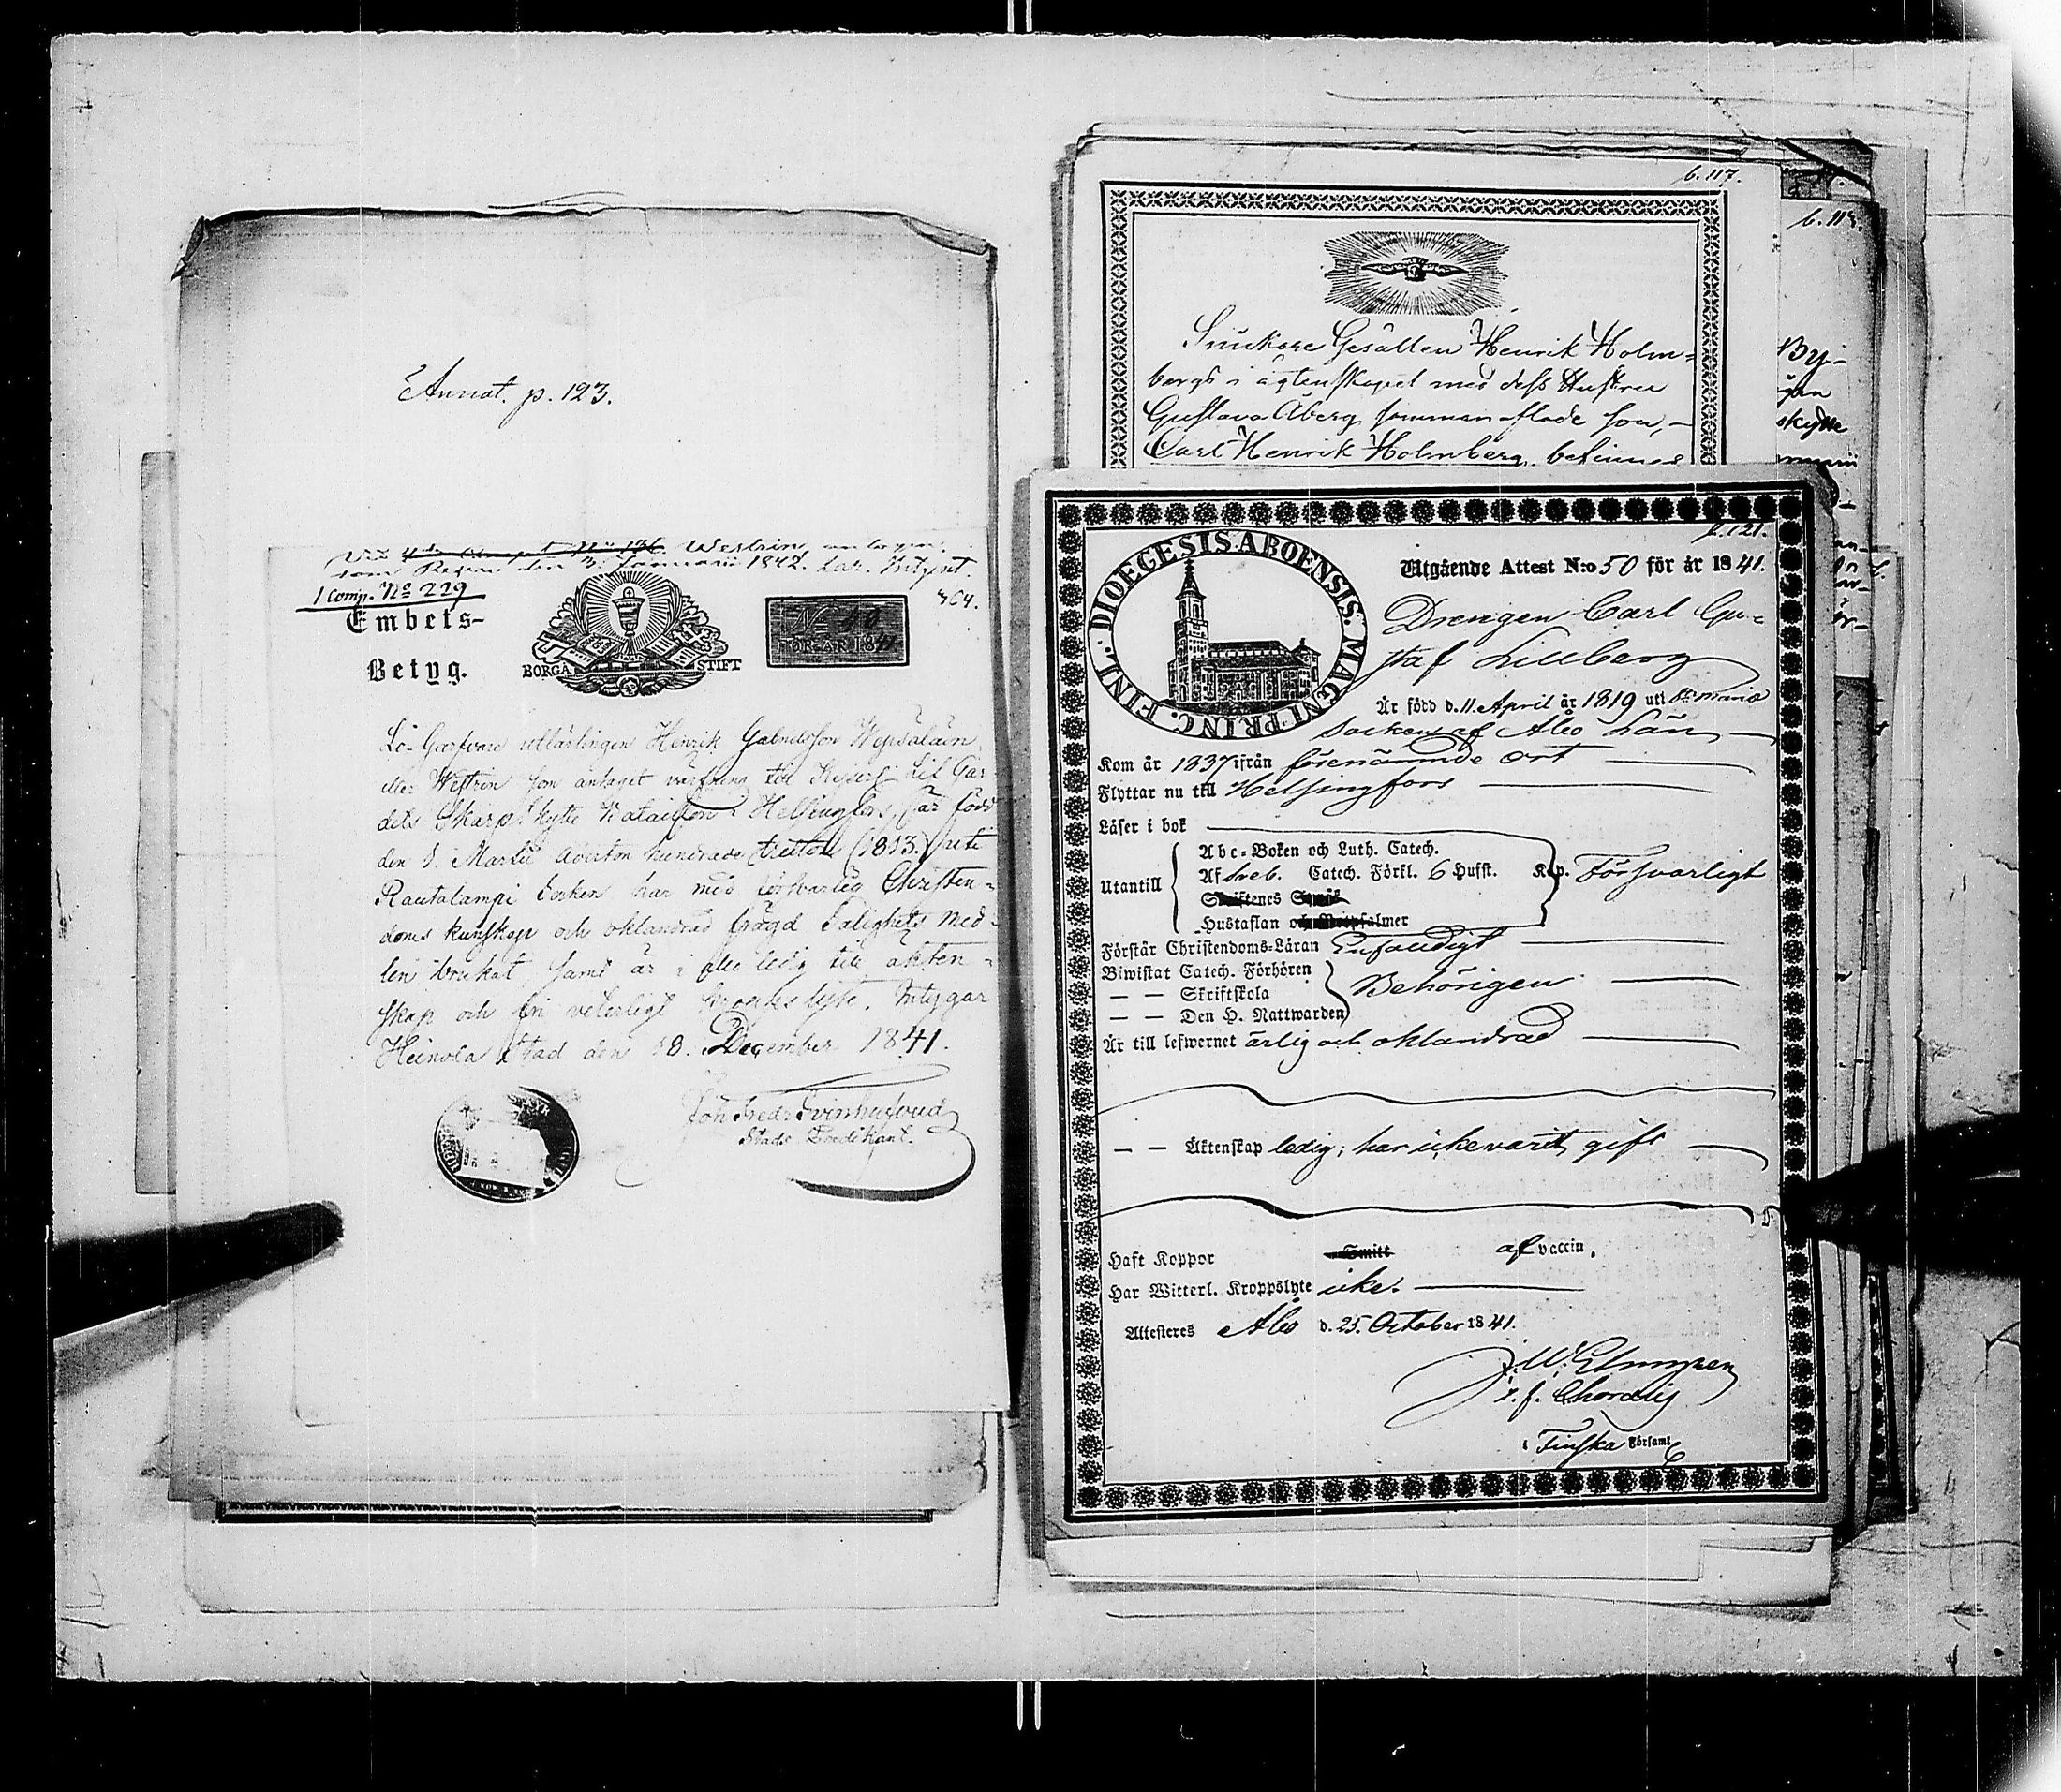 Annot. p. 123.
Westrin, antagen
som Rekryt den 3. Januarii 1842.
1 Comp. No 229
304.
Embets-
Betyg.
BORGÅ STIFT
FÖR ÅR 1841
Lö-Garfvare utlärlingen Henrik Gabrielsson Wepsäläin
eller Westrin som antagit värfning till Kejserl. Lif Gar-
dets Skarp Skytte Bataillon i Helsingfors, är född
den 1. Martii Aderton hundrade tretton (1813.) uti
Rautalampi Socken har med försvarlig Christen-
doms kunskap och oklandrad frägd Salighets med-
len brukat samt är i allo ledig till äkten-
skap och fri veterligt kroppslyte. Intygar
Heinola Stad den 18. December 1841.
Joh Fredr Svinhufvud
Stads Predikant.
b. 117.
b. 118.
Snickare Gesällen Henrik Holm-
bergs i ägtenskapet med dess Hustru
Gustava Åberg sammanaflade son,
Carl Henrik Holmberg, befinnes
b. 121.
DIOEGESIS ABOENSIS. MAGNI PRINC. FINL.
Utgående Attest N:o 50 för år 1841.
Drengen Carl Gu-
staf Lillberg
Är född d. 11. April år 1819 uti
Socken af Åbo Län
Kom år 1837 ifrån förenämnde ort
Flyttar nu till Helsingfors
Läser i bok
Utantill
Abc-Boken och Luth. Catech.
Af Sveb. Catech. Förkl. 6 Hufst. Kap. Försvarligt
Skriftenes Språk
Hustaflan och Botpsalmer
Förstår Christendoms-Läran Enfaldigt
Biwistat Catech. Förhören
— — Skriftskola Behörigen
— — Den H. Nattwarden
Är till lefwernet ärlig och oklandrad
— — Äktenskap ledig; har icke varit gift
Haft Koppor Smitt af vaccin.
Har Witterl. Kroppslyte icke.
Attesteres Åbo d. 25. October 1841.
i Finska Församl